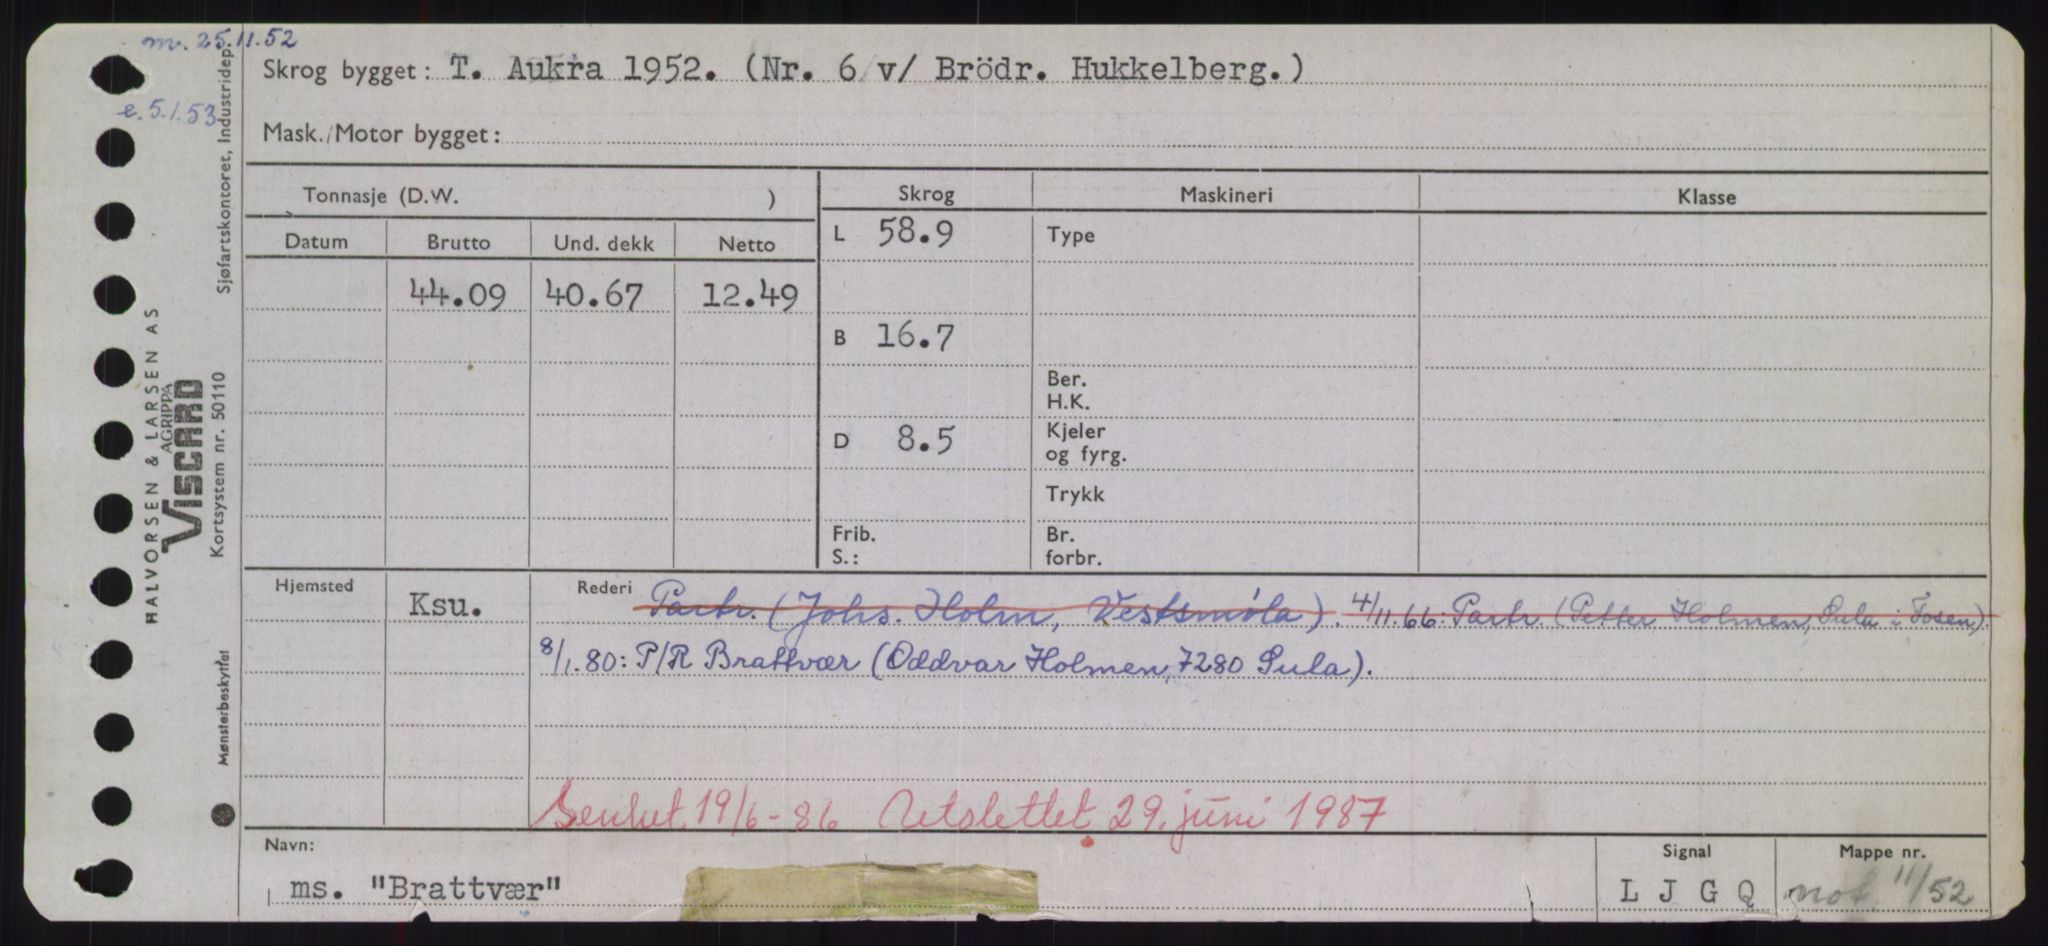 m. 25.11.52
Skrog bygget: T. Aukra 1952. (Nr. 6 v/ Brödr. Hukkelberg.)
e. 5.1.53
Mask./Motor bygget:
Tonnasje (D.W. )
Skrog
Maskineri
Klasse
Datum Brutto Und. dekk Netto
L 58.9
Type
44.09 40.67 12.49
B 16.7
Ber.
H.K.
D 8.5
Kjeler
og fyrg.
Trykk
Frib.
S.:
Br.
forbr.
Hjemsted
Ksu.
Rederi Partr. (Johs. Holm, Vestsmøla). 4/11.66: Partr. (Petter Holmen, Sula i Fosen).
8/1.80: P/R Brattvær (Oddvar Holmen, 7280 Sula).
Senket 19/6-86 Utslettet 29. juni 1987
Navn:
ms. "Brattvær"
Signal
L J G Q
Mappe nr.
not. 11/52
Sjøfartskontoret, Industridep.
HALVORSEN & LARSEN AS
AGRIPPA
VISCARD
Kortsystem nr. 50110
Mønsterbeskyttet